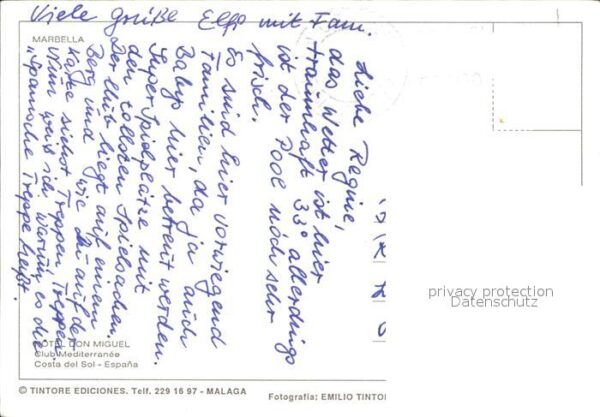 Viele grüße Elfi mit Fam.
MARBELLA
Liebe Regine,
das Wetter ist hier
traumhaft 33° allerdings
ist der Pool noch sehr
frisch.
Es sind hier vorwiegend
Familien, da ja auch
Babys hier betreut werden.
Super Spielplätze mit
den tollsten Spielsachen.
Der Club liegt auf einem
Berg und wie Du auf der
Karte siehst Treppen Treppen.
Nun weiß ich warum es die
"Spanische Treppe heißt.
HOTEL DON MIGUEL
Club Mediterranée
Costa del Sol - España
© TINTORE EDICIONES. Telf. 229 16 97 - MALAGA
Fotografía: EMILIO TINTO
privacy protection
Datenschutz